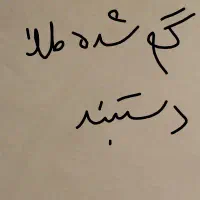 گم شده طلا
دستبند